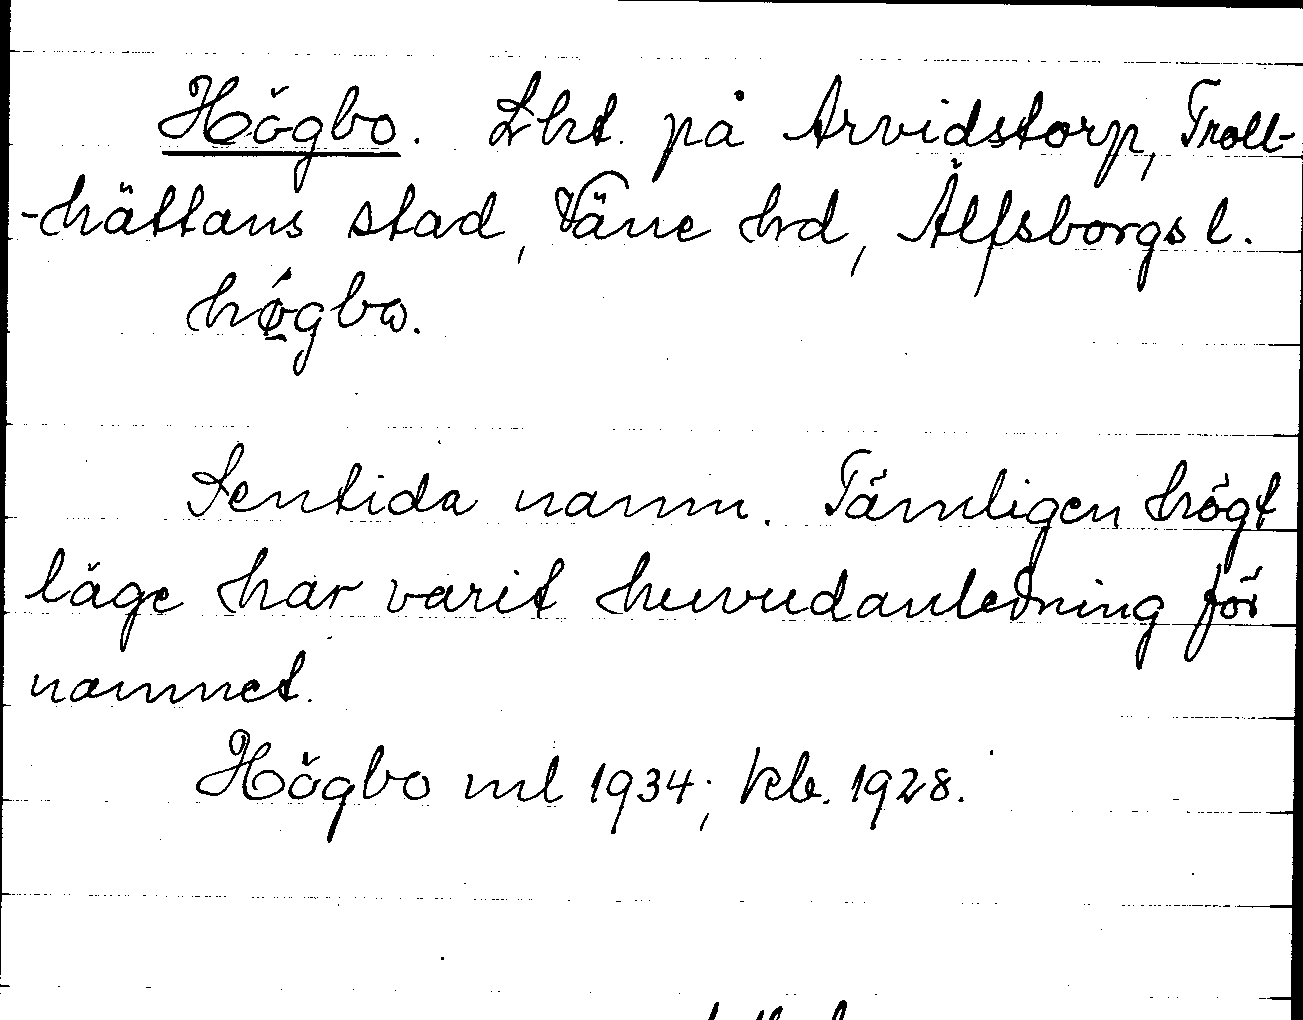 Högbo. Lht. på Arvidstorp, Troll-
-hättans stad, Väne hd, Älfsborgs l.
hǿ̱gbω.
Sentida namn. Tämligen högt
läge har varit huvudanledning för
namnet.
Högbo ml 1934; kb. 1928.